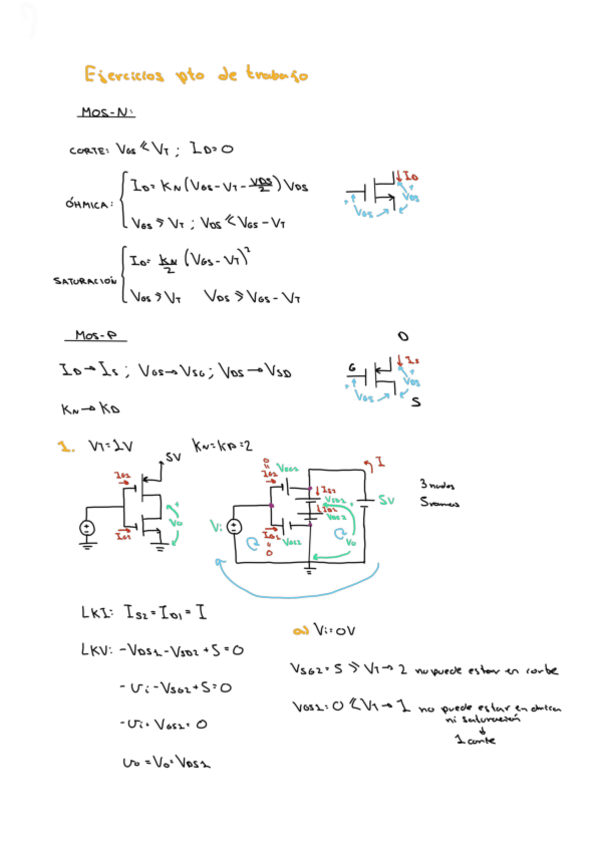 Ejercicios pto de trabajo
MOS-N:
CORTE: VGS ≤ VT ; ID=0
ÓHMICA:
ID= KN(VGS-VT-VDS/2)VDS
VGS ≥ VT ; VDS ≤ VGS-VT
SATURACIÓN
ID= KN/2 (VGS-VT)²
VGS ≥ VT VDS ≥ VGS-VT
ID
VDS
VGS
MOS-P
ID → IS ; VGS → VSG ; VDS → VSD
KN → KP
D
G
IS
VDS
VGS
S
1. VT=1V KN=KP=2
5V
IG2
IG1
Vo
Vi
I
5V
Vo
3 nudos
5 ramas
LKI: IS2 = ID1 = I
LKV: -VDS1-VSD2+5=0
-vi-VSG2+5=0
-vi+VGS1=0
vo=Vo=VDS1
a) Vi=0V
VSG2=5 ≥ VT → 2 no puede estar en corte
VGS1=0 ≤ VT → 1 no puede estar en óhmica
ni saturación
↓
1 corte